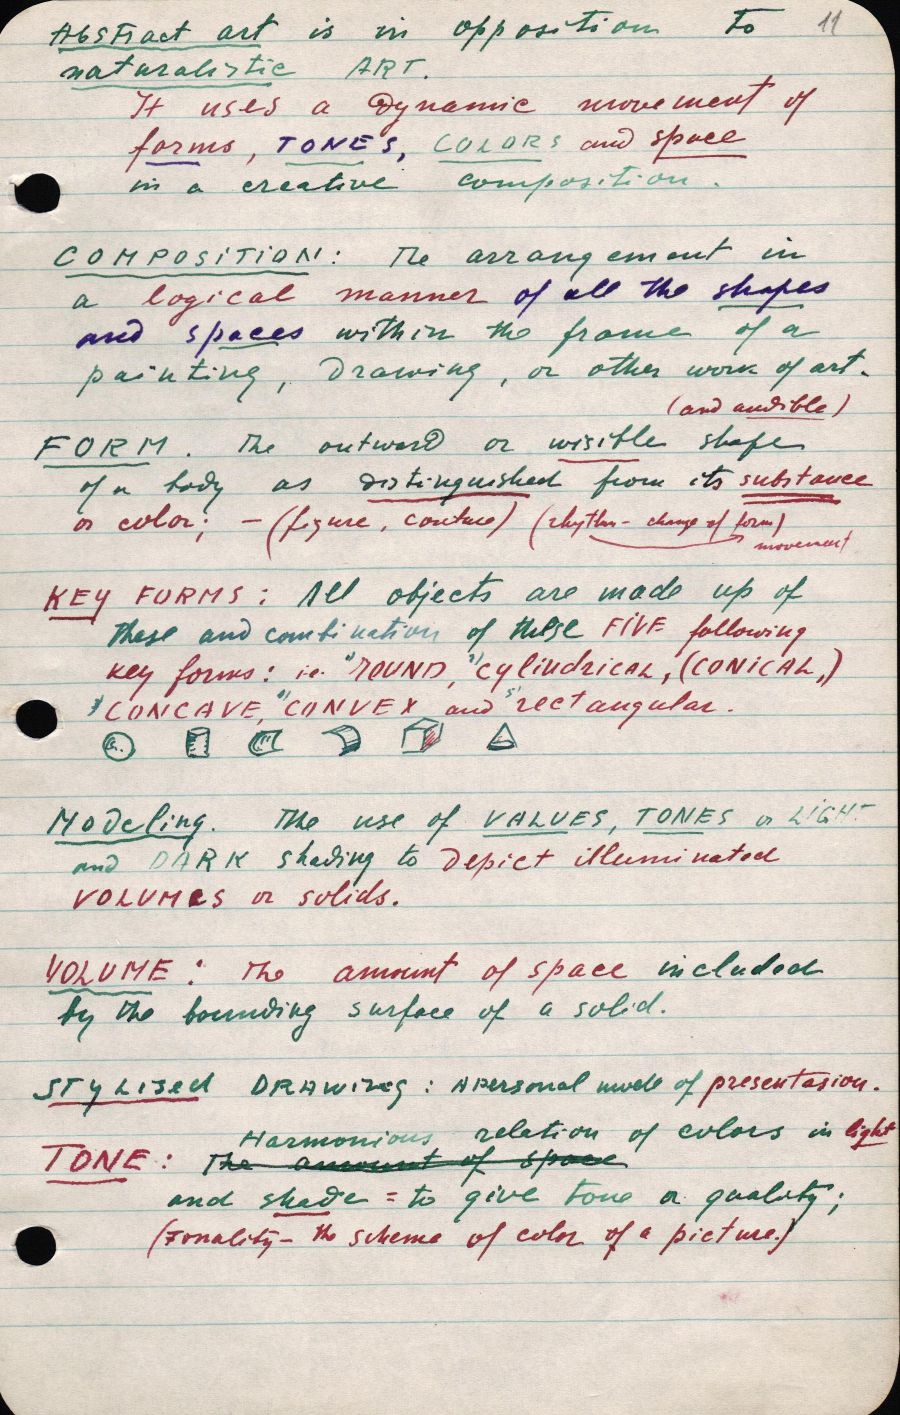 11
Abstract art is in opposition to
naturalistic ART.
It uses a dynamic movement of
forms, TONES, COLORS and space
in a creative composition.
COMPOSITION: The arrangement in
a logical manner of all the shapes
and spaces within the frame of a
painting, drawing, or other work of art.
(and audible)
FORM. The outward or visible shape
of a body as distinguished from its substance
or color; - (figure, ) (rhythm - change of form)
movement
KEY FORMS: All objects are made up of
these and combination of these FIVE following
key forms: i.e. 1) ROUND, 2) cylindrical, (CONICAL,)
3) CONCAVE, 4) CONVEX and 5) rectangular.
Modeling. The use of VALUES, TONES or LIGHT
and DARK shading to depict illuminated
VOLUMES or solids.
VOLUME: The amount of space included
by the bounding surface of a solid.
STYLISED DRAWING: A personal mode of presentation.
Harmonious relation of colors in light
TONE: The amount of space
and shade = to give tone or quality;
(Tonality - the scheme of color of a picture.)